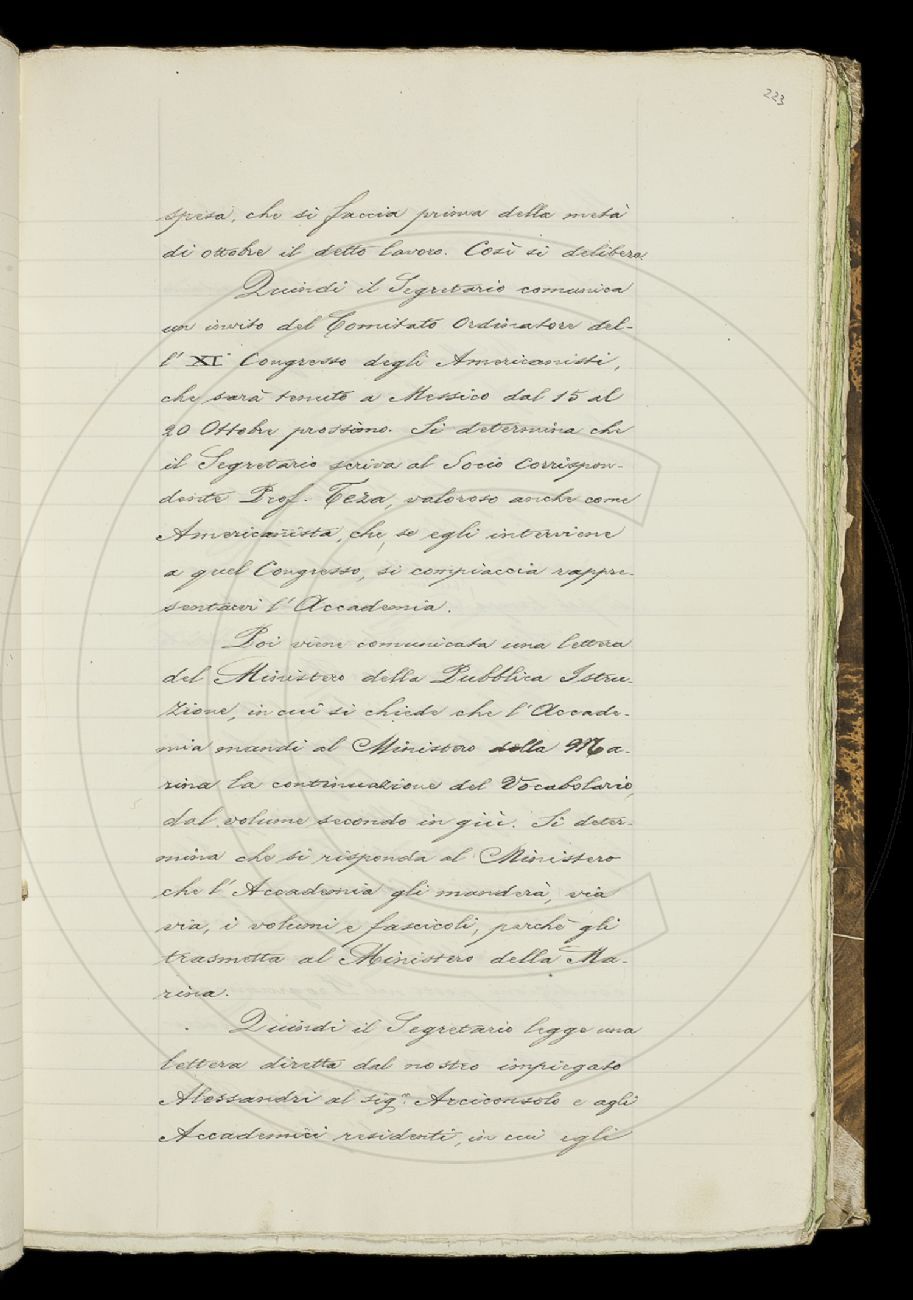 223
spesa, che si faccia prima della metà
di ottobre il detto lavoro. Così si delibera
Quindi il Segretario comunica
un invito del Comitato Ordinatore del-
l' XI° Congresso degli Americanisti,
che sarà tenuto a Messico dal 15 al
20 Ottobre prossimo. Si determina che
il Segretario scriva al Socio Corrispon-
dente Prof. Teza, valoroso anche come
Americanista, che, se egli interviene
a quel Congresso, si compiaccia rappre-
sentarvi l'Accademia.
Poi viene comunicata una lettera
del Ministero della Pubblica Istru-
zione, in cui si chiede che l'Accade-
mia mandi al Ministero della Ma-
rina la continuazione del Vocabolario,
dal volume secondo in giù. Si deter-
mina che si risponda al Ministero
che l'Accademia gli manderà, via
via, i volumi e fascicoli, perchè gli
trasmetta al Ministero della Ma-
rina.
Quindi il Segretario legge una
lettera diretta dal nostro impiegato
Alessandri al sigr. Arciconsolo e agli
Accademici residenti, in cui egli